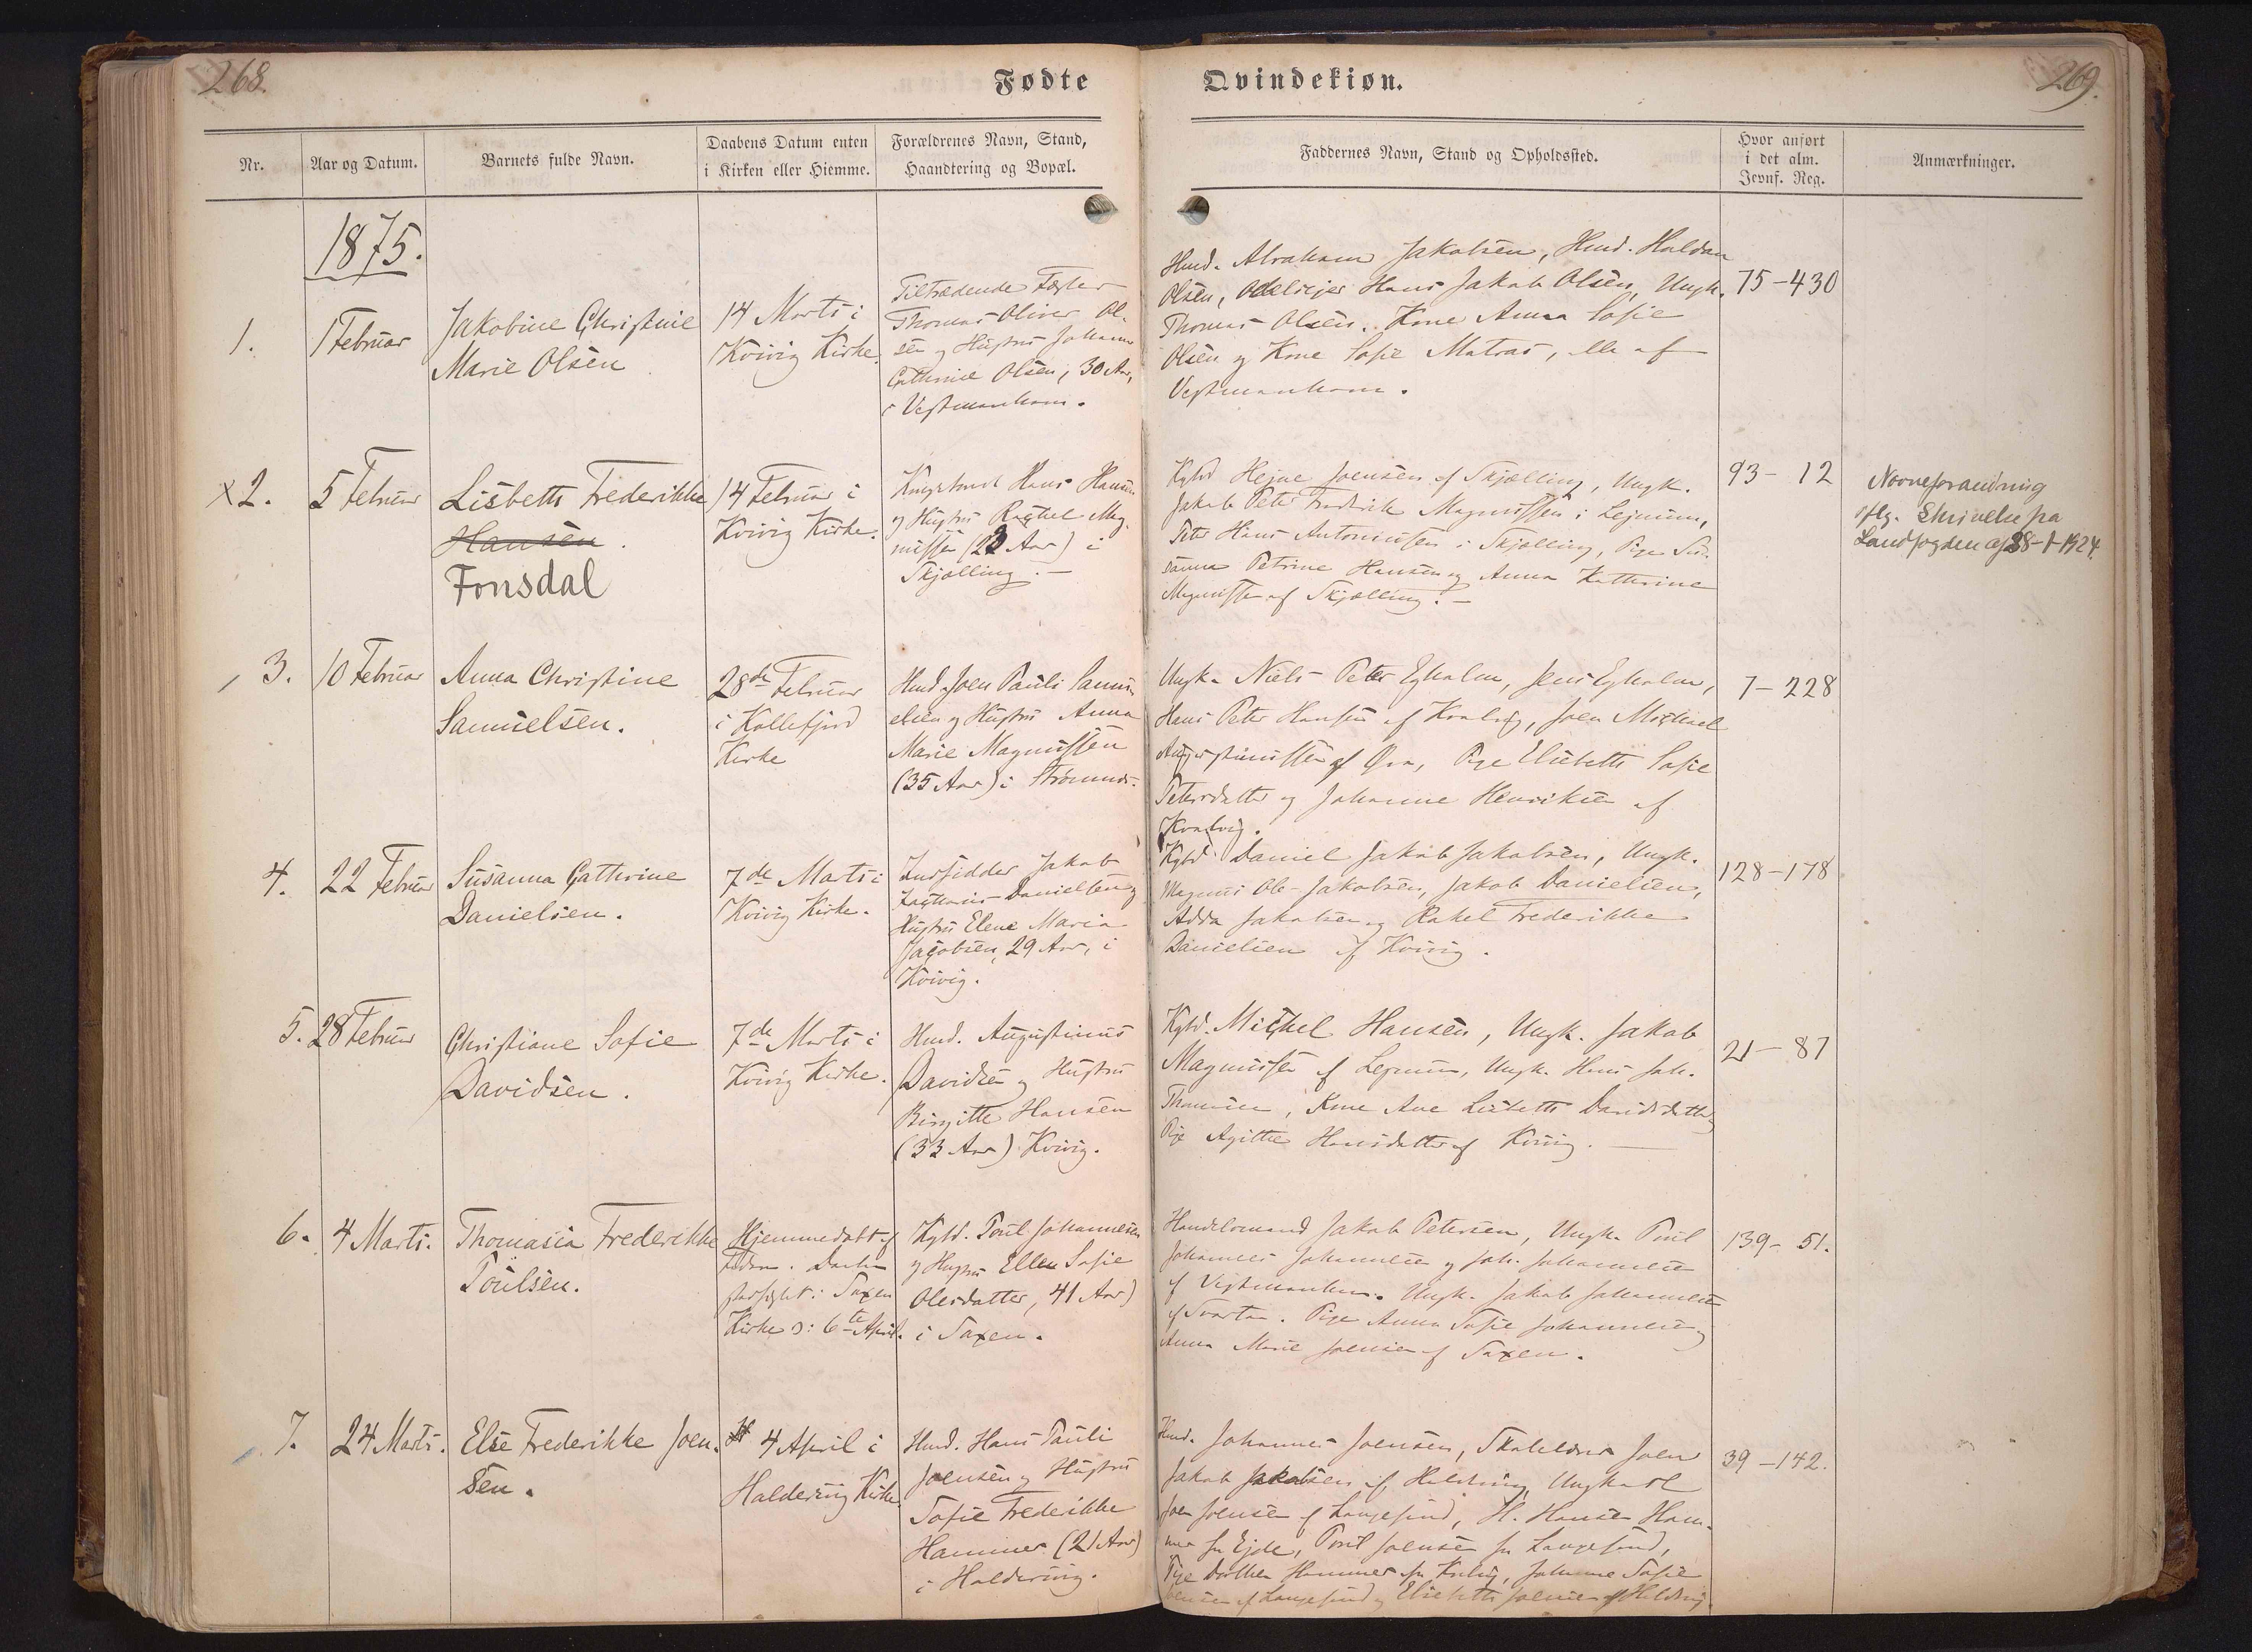 268.
Fødte
Qvindekiøn.
269.
Nr.
Aar og Datum.
Barnets fulde Navn.
Daabens Datum enten
i Kirken eller Hiemme.
Forældrenes Navn, Stand,
Haandtering og Bopæl.
Faddernes Navn, Stand og Opholdssted.
Hvor anført
i det alm.
Jevnf. Reg.
Anmærkninger.
1875.
1.
1 Februar
Jakobine Christine
Marie Olsen
14 Marts i
Kvivig Kirke.
Tiltrædende Fæster
Thomas Oliver Ol-
sen og Hustru Johanne
Cathrine Olsen, 30 Aar,
i Vestmanhavn.
Hmd. Abraham Jakobsen, Hmd. Haldan
Olsen, Odelsejer Hans Jakob Olsen, Ungk.
Thomas Olsen. Kone Anna Sofie
Olsen og Kone Sofie Matras, alle af
Vestmanhavn.
75-430
x 2.
5 Februar
Lisbeth Frederikke
Hansen.
Fonsdal
14 Februar i
Kvivig Kirke.
Kongsbond Hans Hansen
og Hustru Rachel Mag-
nussen (22 Aar) i
Skjælling.-
Kgbd Hejne Joensen af Skjælling, Ungk.
Jakob Peter Fredrik Magnussen i Lejnum,
Peter Hans Antoniussen i Skjælling, Pige Su-
sanna Petrine Hansen og Anna Kathrine
Magnussen af Skjælling.-
93-12
Navneforandring
iflg. Skrivelse fra
Landfogden af 28-1-1924
3.
10 Februar
Anna Christine
Samuelsen.
28de Februar
i Kollefjord
Kirke
Hmd. Joen Pauli Samu-
elsen og Hustru Anna
Marie Magnussen
(35 Aar) i Strømnæs.
Ungk. Niels Peter Egholm, Jens Egholm,
Hans Peter Hansen af Kvalvig, Joen Michael
Augustinussen af Øra, Pige Elisabeth Sofie
Petersdatter og Johanne Henriksen af
Kvalvig.
7-228
4.
22 Februar
Susanna Cathrine
Danielsen.
7de Marts i
Kvivig Kirke.
Indsidder Jakob
Zacharis Danielsen og
Hustru Elene Maria
Jacobsen, 29 Aar, i
Kvivig.
Kgbd. Daniel Jakob Jakobsen, Ungk.
Magnus Ole Jakobsen, Jakob Danielsen,
Adda Jakobsen og Rakel Frederikke
Danielsen af Kvivig.
128-178
5.
28 Februar
Christiane Sofie
Davidsen.
7de Marts i
Kvivig Kirke.
Hmd. Augustinus
Davidsen og Hustru
Birgitte Hansen
(33 Aar) Kvivig.
Kgbd. Michel Hansen, Ungk. Jakob
Magnussen af Lejnum, Ungk. Hans Joh.
Thomsen, Kone Ane Lisbeth Davidsdatter
Pige Agithe Hansdatter af Kvivig.
21-87
6.
4 Marts.
Thomasia Frederikke
Poulsen.
Hjemmedøbt af
Faderen. Daaben
stadfæstet i Saxen
Kirke d: 6te April.
Kgbd. Poul Johannesen
og Hustru Ellen Sofie
Olesdatter, 41 Aar)
i Saxen.
Handelsmand Jakob Petersen, Ungk. Poul
Johannes Johannesen og Joh. Johannesen
af Vestmanhavn. Ungk. Jakob Johannesen
af Svartaa. Pige Anna Sofie Johannesen og
Anna Marie Joensen af Saxen.
139-51.
7.
24 Marts.
Else Frederikke Joen-
sen.
4 April i
Haldervig Kirke.
Hmd. Hans Pauli
Joensen og Hustru
Sofie Frederikke
Hammer (21 Aar)
i Haldervig.
Hmd. Johannes Joensen, Skolelærer Joen
Jakob Jakobsen af Haldervig, Ungkarl
Joen Joensen af Langesund, H. Hansen Ham-
mer fra Ejde, Poul Joensen fra Langesund,
Pige Dorthea Hammer fra Kvivig, Johanne Sofie
Joensen af Langesund og Elisabeth Joensen af Haldervig.
39-142.